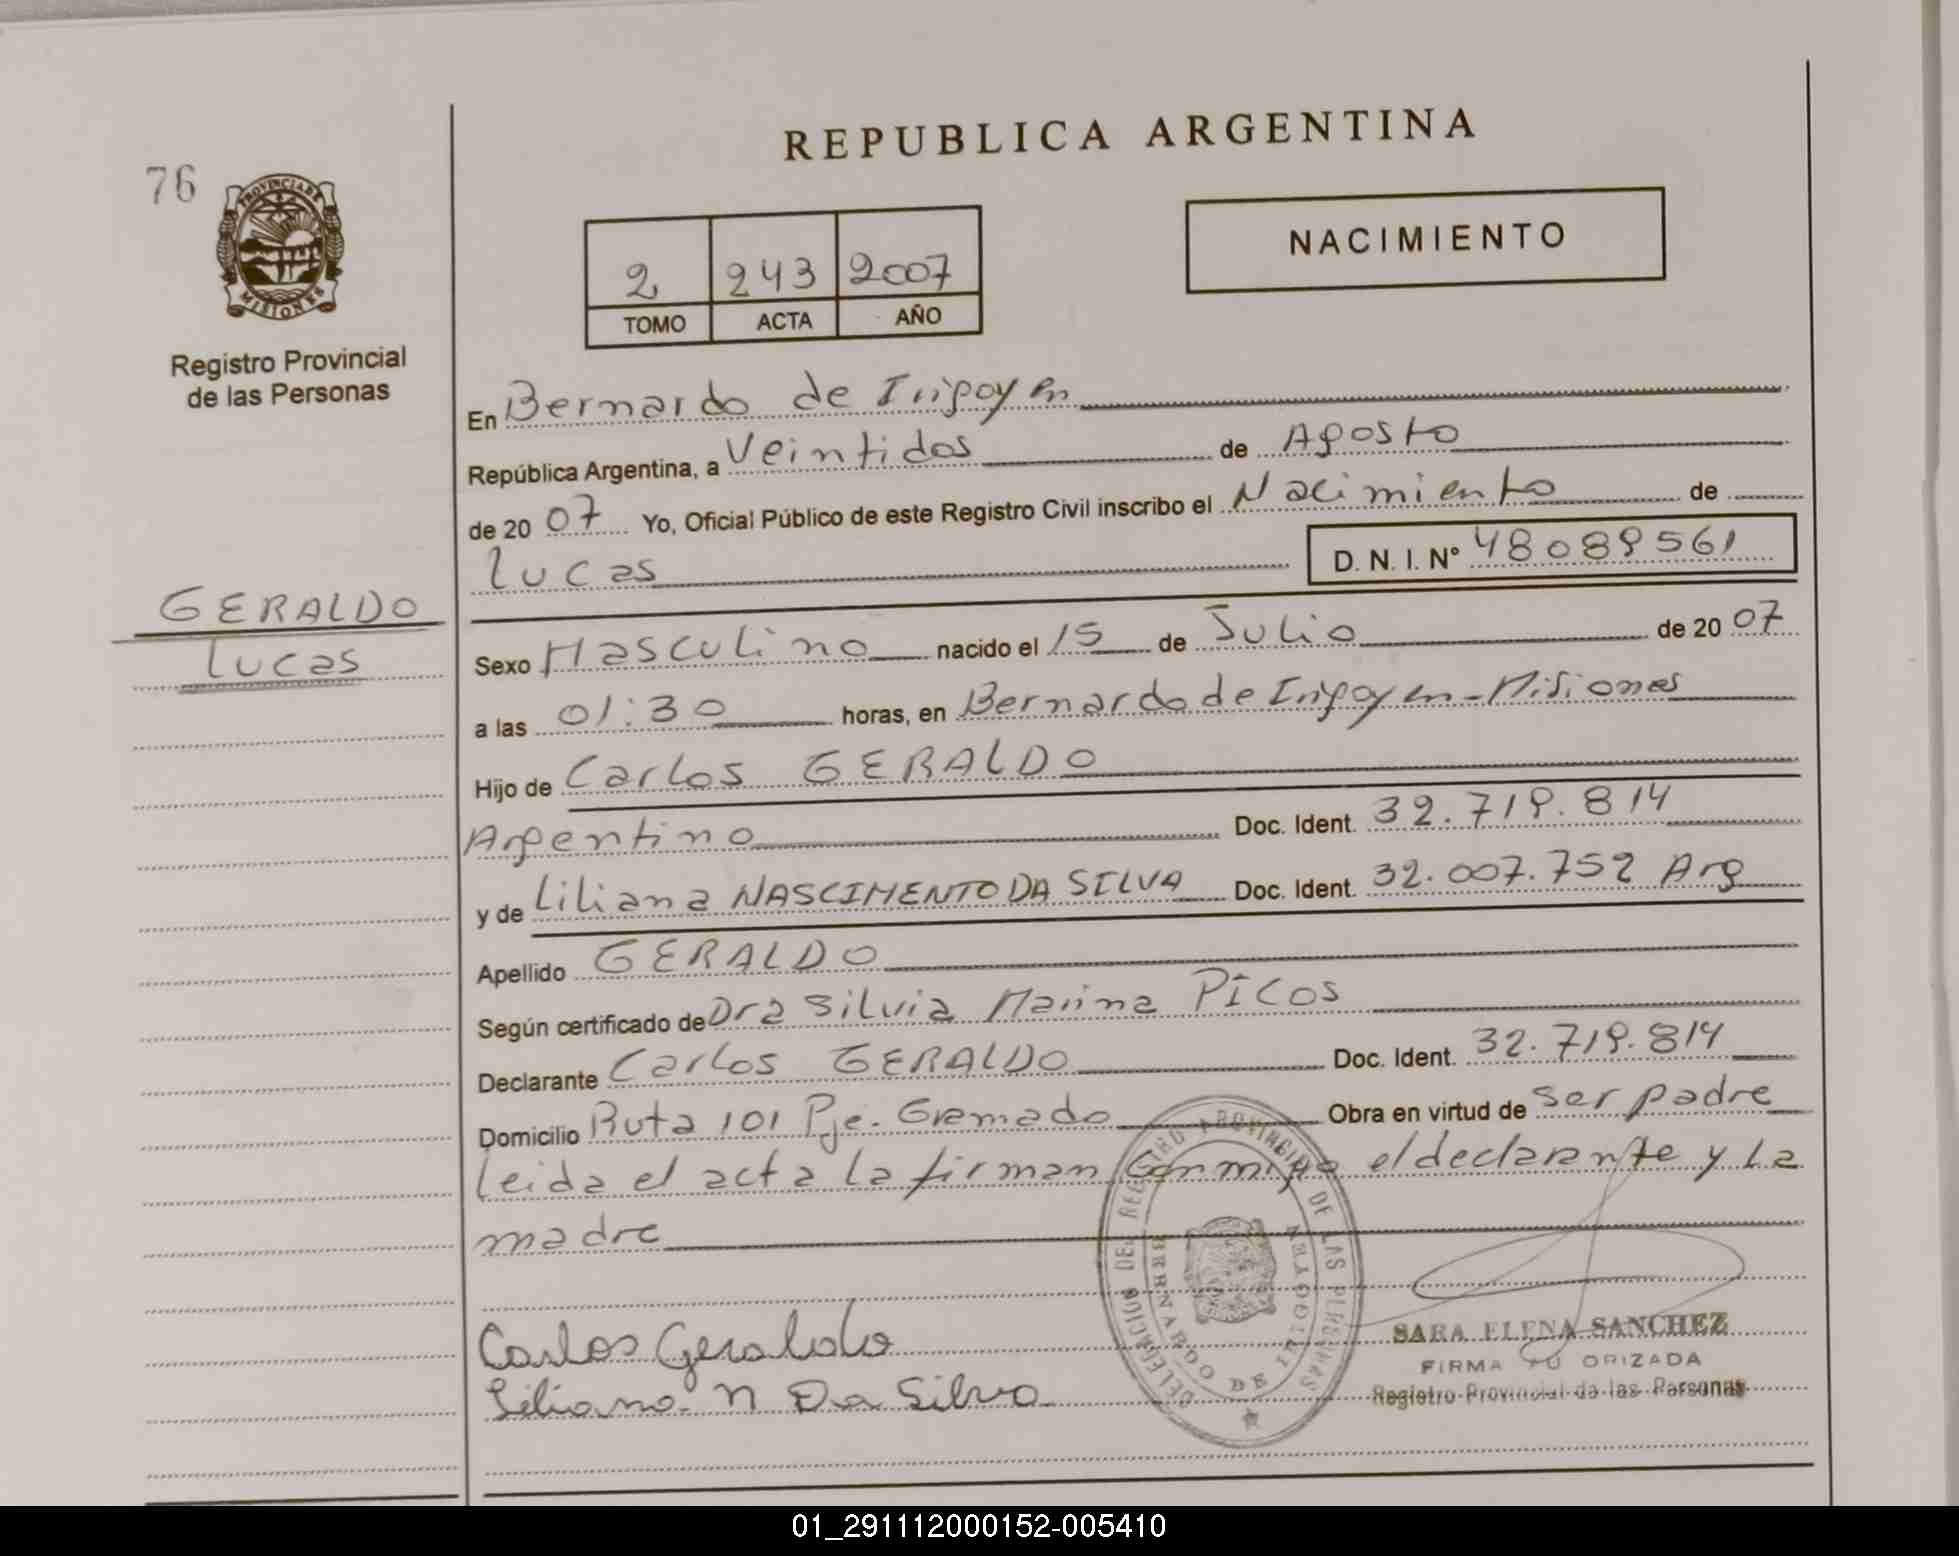 REPUBLICA ARGENTINA
76
PROVINCIA DE
MISIONES
Registro Provincial
de las Personas
NACIMIENTO
2 243 2007
TOMO ACTA AÑO
En Bernardo de Irigoyen
República Argentina, a Veintidos de Agosto
de 20 07 Yo, Oficial Público de este Registro Civil inscribo el Nacimiento de
Lucas D. N. I. Nº 48089561
GERALDO
Lucas
Sexo Masculino nacido el 15 de Julio de 20 07
a las 01:30 horas, en Bernardo de Irigoyen - Misiones
Hijo de Carlos GERALDO
Argentino Doc. Ident. 32.719.814
y de Liliana NASCIMENTO DA SILVA Doc. Ident. 32.007.752 Arg
Apellido GERALDO
Según certificado de Dra Silvia Marina PICOS
Declarante Carlos GERALDO Doc. Ident. 32.719.814
Domicilio Ruta 101 Pje. Gramado Obra en virtud de ser padre
Leida el acta la firman conmigo el declarante y la
madre
DELEGACION DEL REGISTRO PROVINCIAL DE LAS PERSONAS
BERNARDO DE IRIGOYEN
Carlos Geraldo
Liliana N Da Silva
SARA ELENA SANCHEZ
FIRMA AUTORIZADA
Registro Provincial de las Personas
01_291112000152-005410